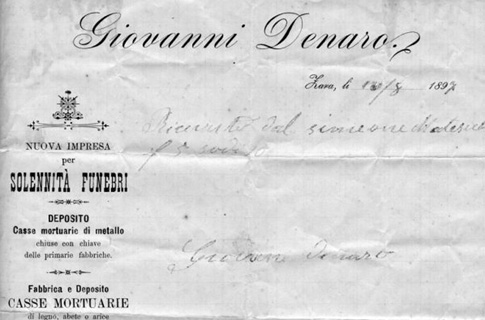 Giovanni Denaro.
Zara, li 13/8 1897
Ricevuto dal simeone
NUOVA IMPRESA
per
SOLENNITÀ FUNEBRI
DEPOSITO
Casse mortuarie di metallo
chiuse con chiave
delle primarie fabbriche.
Giovanni Denaro
Fabbrica e Deposito
CASSE MORTUARIE
di legno, abete o arice